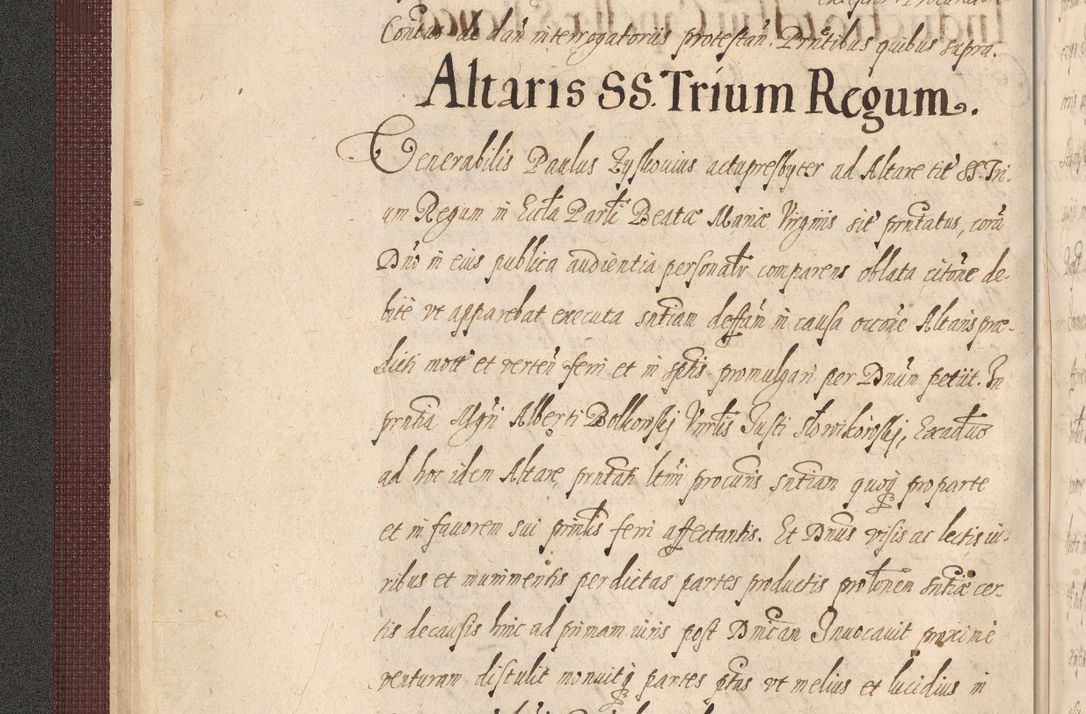 Contra de dan interrogatoriis protestan. Prntibus quibus supra.
Altaris SS. Trium Regum.
Venerabilis Paulus Zyskovius actupresbyter ad Altare tit SS. Tri-
um Regum in Eccla Parli Beatæ Mariæ Virginis sit prntatus, corā
Dno in eius publica audientia personalr comparens oblata citōne de-
bite vt apparebat executa sntiam deffin in causa occōne Altaris præ-
dicti mott et verten ferri et in sptis promulgari per Dnum petiit. In
prntia Mgri Alberti Bolkowskj Vnrlis Justi Slowikowskj, Exadūo
ad hoc idem Altare, prntati ltmi procuris sntiam quoq pro parte
et in fauorem sui prncilis ferri affectantis. Et Dnus visis ac lectis iu-
ribus et munimentis per dictas partes productis prolōnem sntiæ cer-
tis de causis hinc ad primam iuris post Dnicam Inuocauit proxime
venturam distulit monuitq partes ptas vt melius et lucidius in